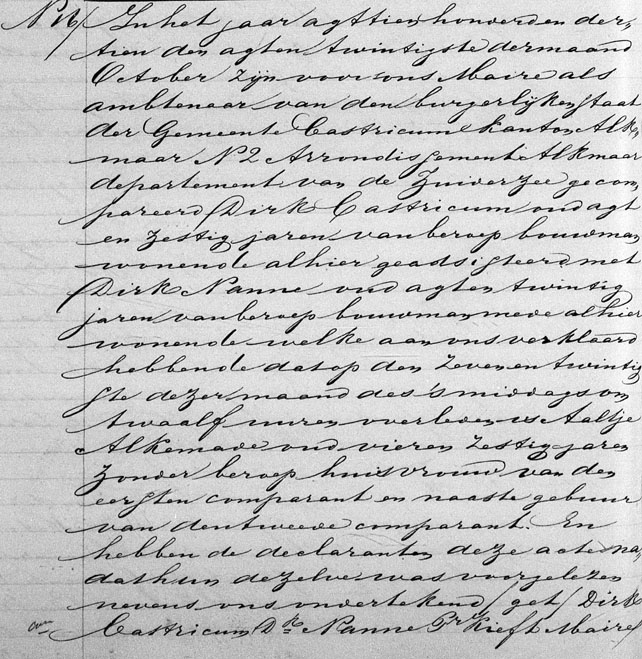 N 16/ In het jaar agttien honderd en der=
tien den agt en twintigste der maand
October zijn voor ons Maire als
ambtenaar van den burgerlijken staat
der Gemeente Castricum Kanton Alk=
maar N 2 Arrondissement Alkmaar
departement van de Zuiderzee gecom
pareerd Dirk Castricum oud agt
en zestig jaren van beroep bouwman
wonende alhier geadsisteerd met
Dirk Nanne oud agt en twintig
jaren van beroep bouwman mede alhier
wonende welke aan ons verklaard
hebbende dat op den zeven en twintig
ste dezer maand des 's middags om
twaalf uuren overleden is Aaltje
Alkemade oud vier en zestig jaren
zonder beroep huisvrouw van den
eersten comparant en naaste gebuur
van den tweede comparant. En
hebben de declaranten deze acte na
dat hun dezelve was voorgelezen
nevens ons ondertekend /get/ Dirk
Castricum, Dk Nanne Pr Kieft Maire/